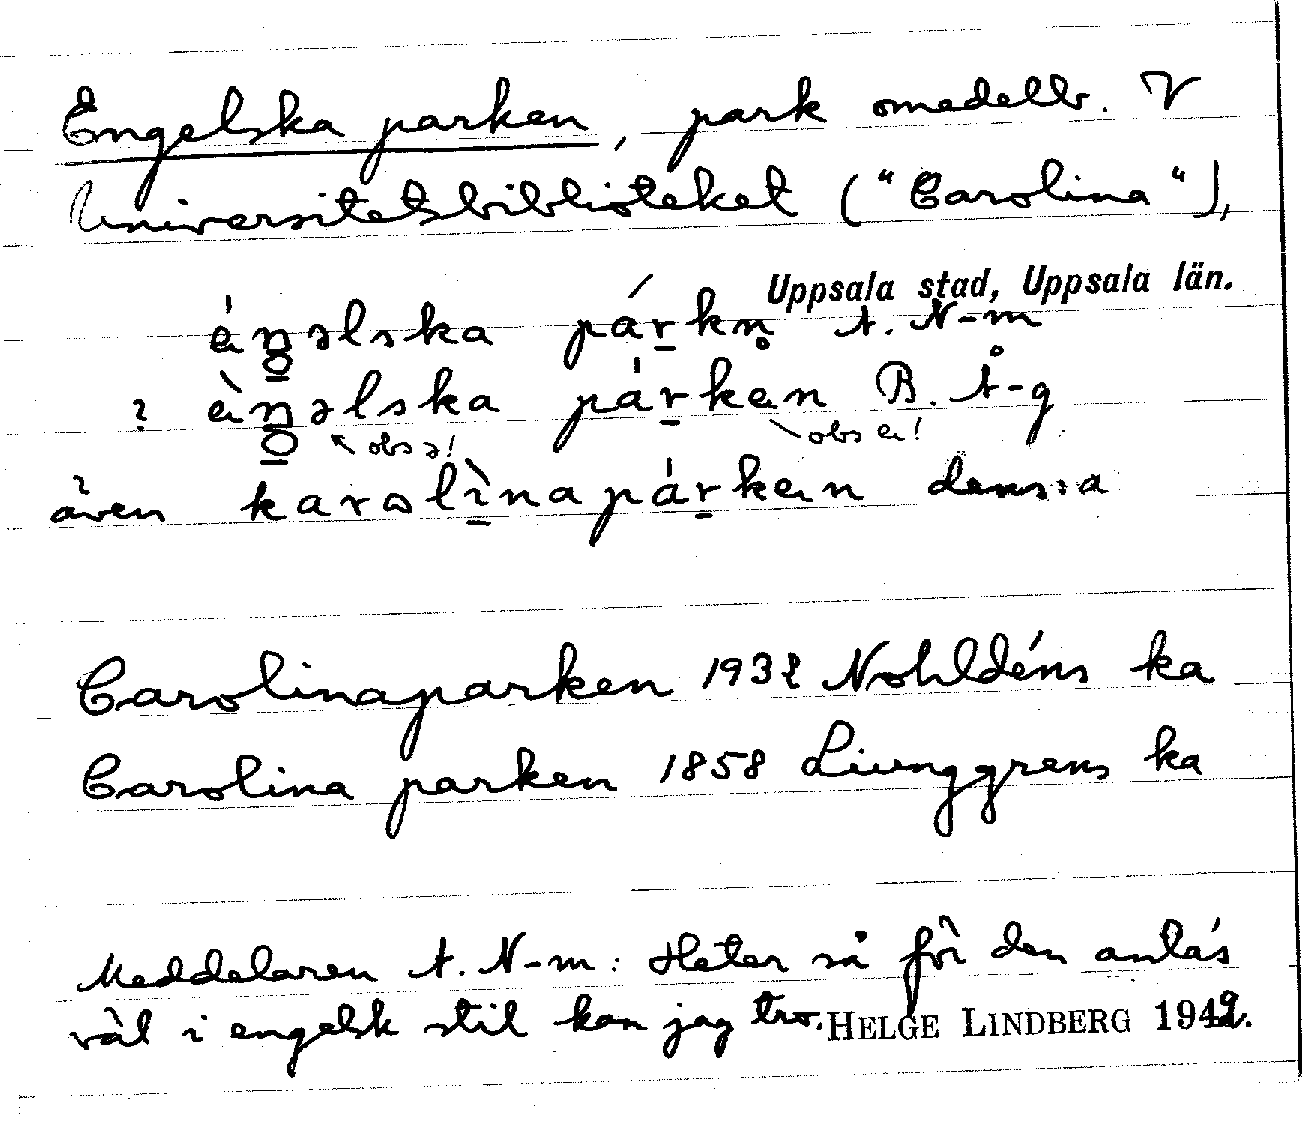 Engelska parken, park omedelb. V
Universitetsbiblioteket ("Carolina"),
Uppsala stad, Uppsala län.
áŋəlska párkn̥ A. N-m
? àŋəlska párkan B. Å-g
obs ə! obs a!
även karolìnapárkan dens:a
Carolinaparken 1932 Nohldéns ka
Carolina parken 1858 Liunggrens ka
Meddelaren A. N-m: Heter så för den anla's
väl i engelsk stil kan jag tro. HELGE LINDBERG 1942.